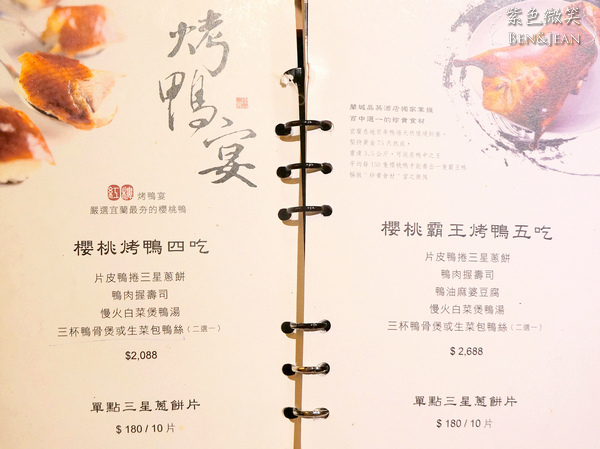 紫色微笑
BEN&JEAN
烤鴨宴
紅樓 烤鴨宴
嚴選宜蘭最夯的櫻桃鴨
櫻桃烤鴨四吃
片皮鴨捲三星蔥餅
鴨肉握壽司
慢火白菜煲鴨湯
三杯鴨骨煲或生菜包鴨絲（二選一）
$2,088
單點三星蔥餅片
$ 180 / 10 片
蘭城晶英酒店獨家掌握
百中選一的珍貴食材
櫻桃霸王烤鴨五吃
片皮鴨捲三星蔥餅
鴨肉握壽司
鴨油麻婆豆腐
慢火白菜煲鴨湯
三杯鴨骨煲或生菜包鴨絲（二選一）
$ 2,688
單點三星蔥餅片
$ 180 / 10 片